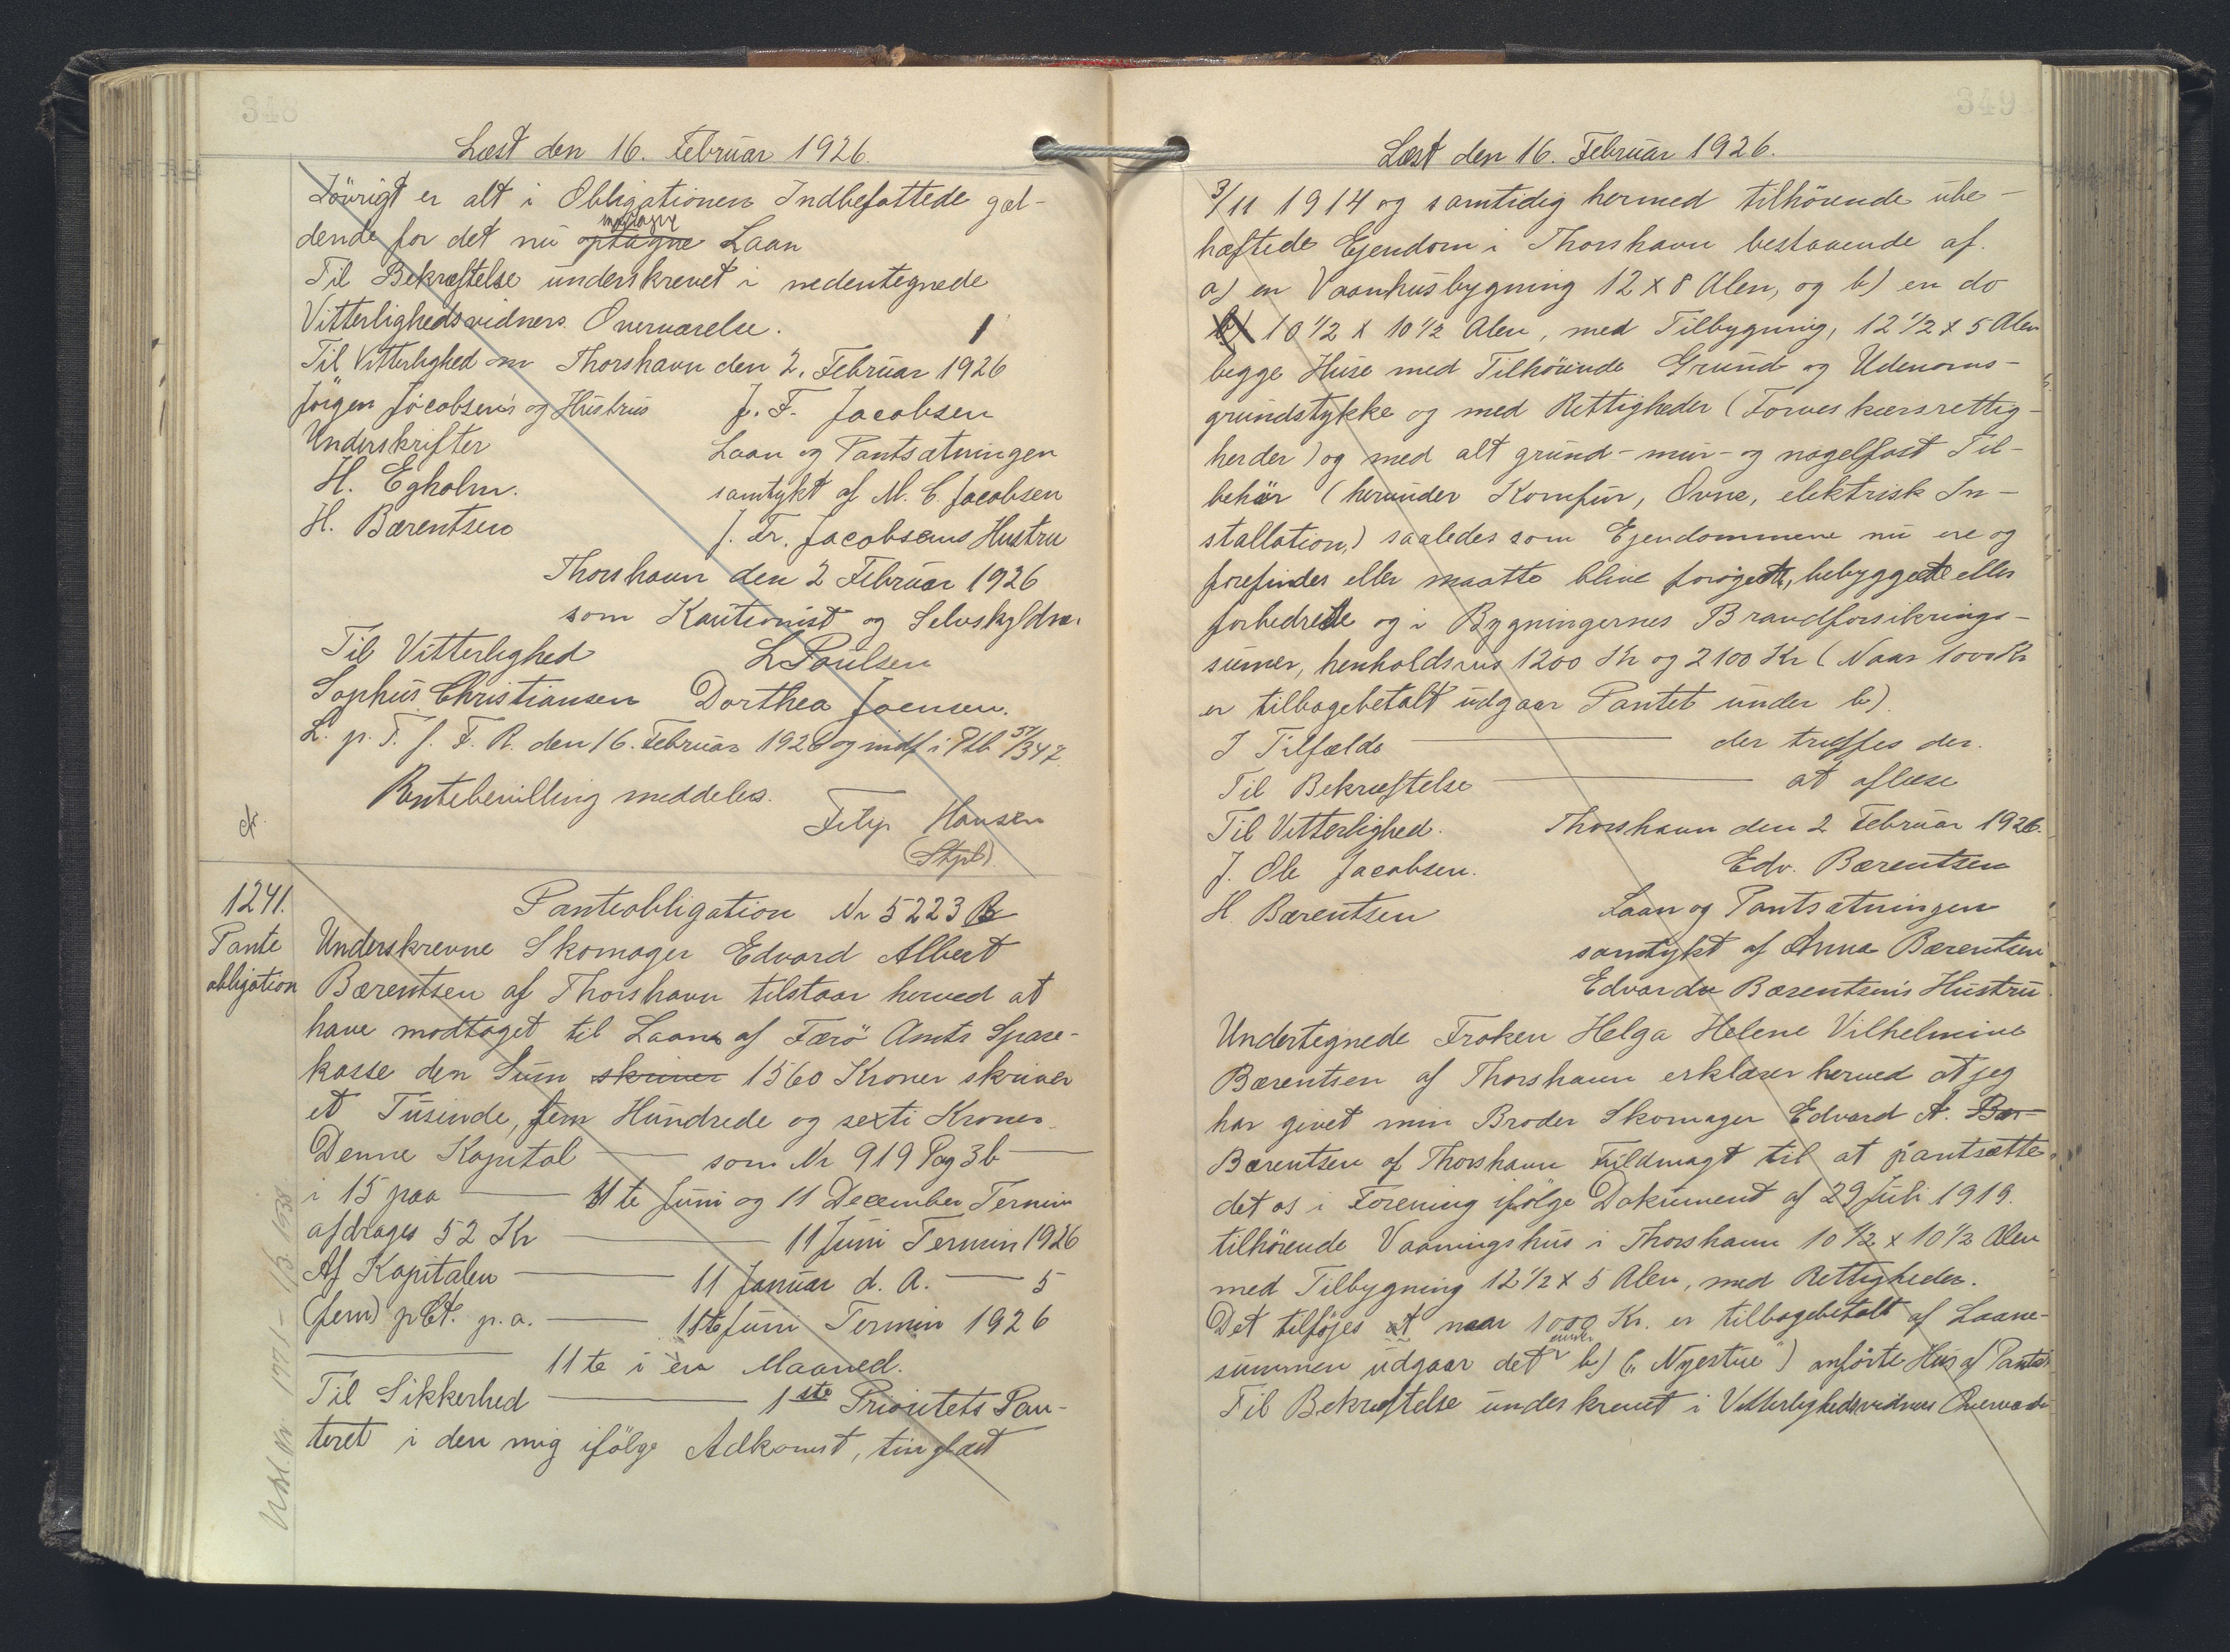 348
Læst den 16. Februar 1926.
Iövrigt er alt i Obligationen Indbefattede gæl-
dende for det nu optagne modtagne Laan
Til Bekræftelse underskrevet i nedentegnede
Vitterlighedsvidners Overværelse.
Til Vitterlighed om Thorshavn den 2. Februar 1926
Jörgen Jacobsen's og Hustrus J. F. Jacobsen
Underskrifter Laan og Pantsætningen
H. Egholm. samtykt af M. C. Jacobsen
H. Bærentsen J. Fr. Jacobsens Hustru
Thorshavn den 2 Februar 1926
som Kautionist og Selvskyldner
Til Vitterlighed L Poulsen
Sophus Christiansen Dorthea Joensen.
L. p. T. f. F. R. den 16. Februar 1926 og indf i Ptb 57/347.
Rentebevilling meddeles.
Filip Hansen
(Stpl)
cf.
1241.
Pante
obligation
Panteobligation Nr 5223 B
Underskrevne Skomager Edvard Albert
Bærentsen af Thorshavn tilstaar herved at
have modtaget til Laans af Færö Amts Spare-
kasse den Sum skriver 1560 Kroner skriver
et Tusinde, fem Hundrede og sexti Kroner.
Denne Kapital — som Nr 919 Pag 3b —
i 15 paa — 11te Juni og 11 December Termin
afdrages 52 Kr — 11 Juni Termin 1926
Af Kapitalen — 11 Januar d. A. — 5
(fem) pCt. p. a. — 11te Juni Termin 1926
— 11te i en Maaned.
Til Sikkerhed — 1ste Prioritets Pan-
teret i den mig ifölge Adkomst, tinglæst
Udsl. Nr 1771 - 1/3 1938
349
Læst den 16. Februar 1926.
3/11 1914 og samtidig hermed tilhörende ube-
hæftede Ejendom i Thorshavn bestaaende af.
a) en Vaanhusbygning 12 x 8 Alen, og b) en do
b) 10 1/2 x 10 1/2 Alen, med Tilbygning, 12 1/2 x 5 Alen
begge Huse med Tilhörende Grund og Udenoms-
grundstykke og med Rettigheder (Torveskærsrettig-
heder) og med alt grund- mur- og nagelfast Til-
behör (herunder Komfur, Ovne, elektrisk In-
stallation,) saaledes som Ejendommene nu ere og
forefindes eller maatte blive forøgede, bebyggede eller
forbedrede og i Bygningernes Brandforsikrings-
sumer, henholdsvis 1200 Kr og 2100 Kr (Naar 1000 Kr
er tilbagebetalt udgaar Pantet under b).
I Tilfælde — der træffes der.
Til Bekræftelse — at aflæse
Til Vitterlighed. Thorshavn den 2 Februar 1926.
J. Ole Jacobsen. Edv. Bærentsen
H. Bærentsen Laan og Pantsætningen
samtykt af Anna Bærentsen
Edvards Bærentsen's Hustru
Undertegnede Froken Helga Helene Vilhelmine
Bærentsen af Thorshavn erklærer herved at jeg
har givet min Broder Skomager Edvard A. Bær-
Bærentsen af Thorshavn Fuldmagt til at pantsætte
det os i Forening ifölge Dokument af 29 Juli 1919.
tilhörende Vaaningshus i Thorshavn 10 1/2 x 10 1/2 Alen
med Tilbygning 12 1/2 x 5 Alen, med Rettigheder.
Det tilföjes at naar 1000 Kr. er tilbagebetalt af Laane-
summen udgaar det under b) („Nyestue") anförte Hus af Pantet
Til Bekræftelse underskrevet i Vitterlighedsvidners Overvær